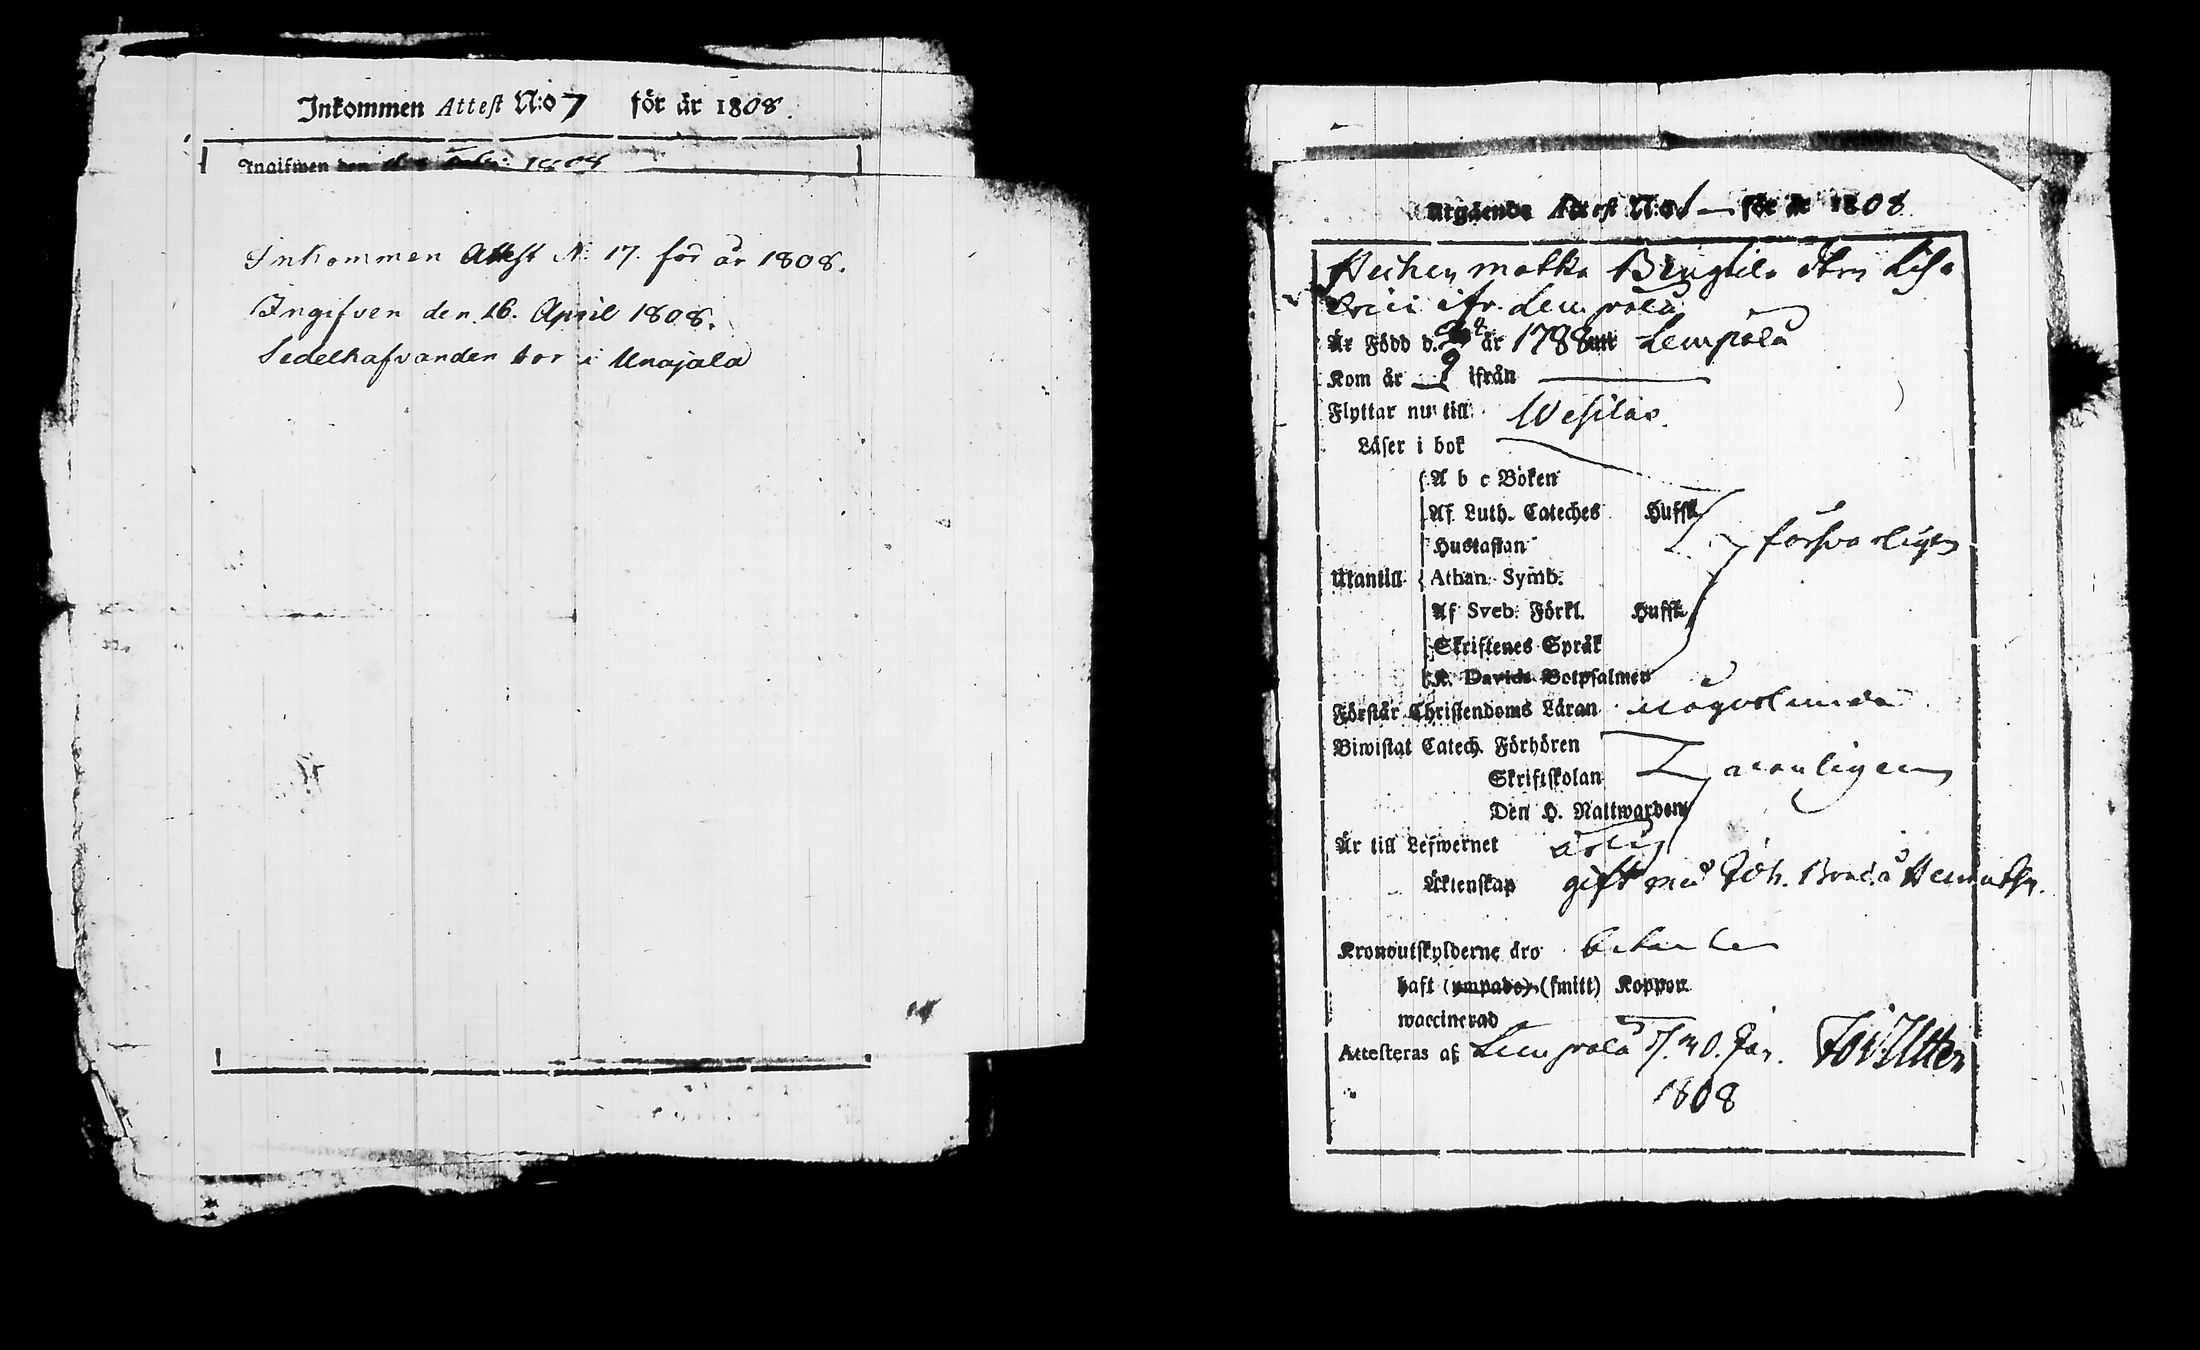 Inkommen Attest N:o 7 för år 1808.
Ingifwen den 1808
Inkommen Attest N. 17. för år 1808.
Ingifven den 16. April 1808.
Sedelhafvanden bor i Unajala
Utgående Attest N:o 1 för år 1808
matka
ifr. Lempälä
Är Född d. år 1788 uti Lempälä
Kom år ifrån
Flyttar nu till Wesilax.
Läser i bok
A b c Boken
Af Luth. Cateches Hufst.
försvarligen
Hustaflan
Utantill Athan. Symb.
Af Sveb. Förkl. Hufst.
Skriftenes Språk
K. Davids Botpsalmer
Förstår Christendoms Läran någorlunda
Biwistat Catech. Förhören
Skriftskolan vanligen
Den H. Nattwarden
Är till Lefwernet ärlig
Äktenskap gift med Joh.
Kronoutskylderne äro betalte
haft (ympade) (smitt) Koppor
waccinerad
Attesteras af Lempälä d. 30. Jan.
1808